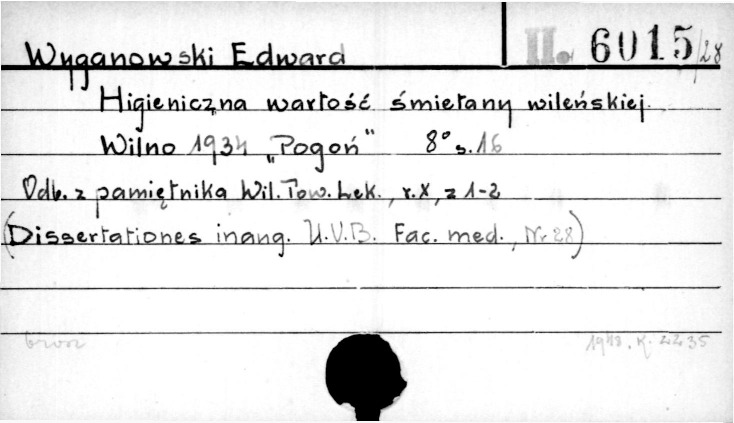 Wyganowski Edward II. 6015/28
Higieniczna wartość śmietany wileńskiej.
Wilno 1934 „Pogoń" 8° s. 16
Odb. z pamiętnika Wil. Tow. Lek., r. X, z 1-2
(Dissertationes inaug. U.V.B. Fac. med., Nr 28)
brosz
1948. K. 2235